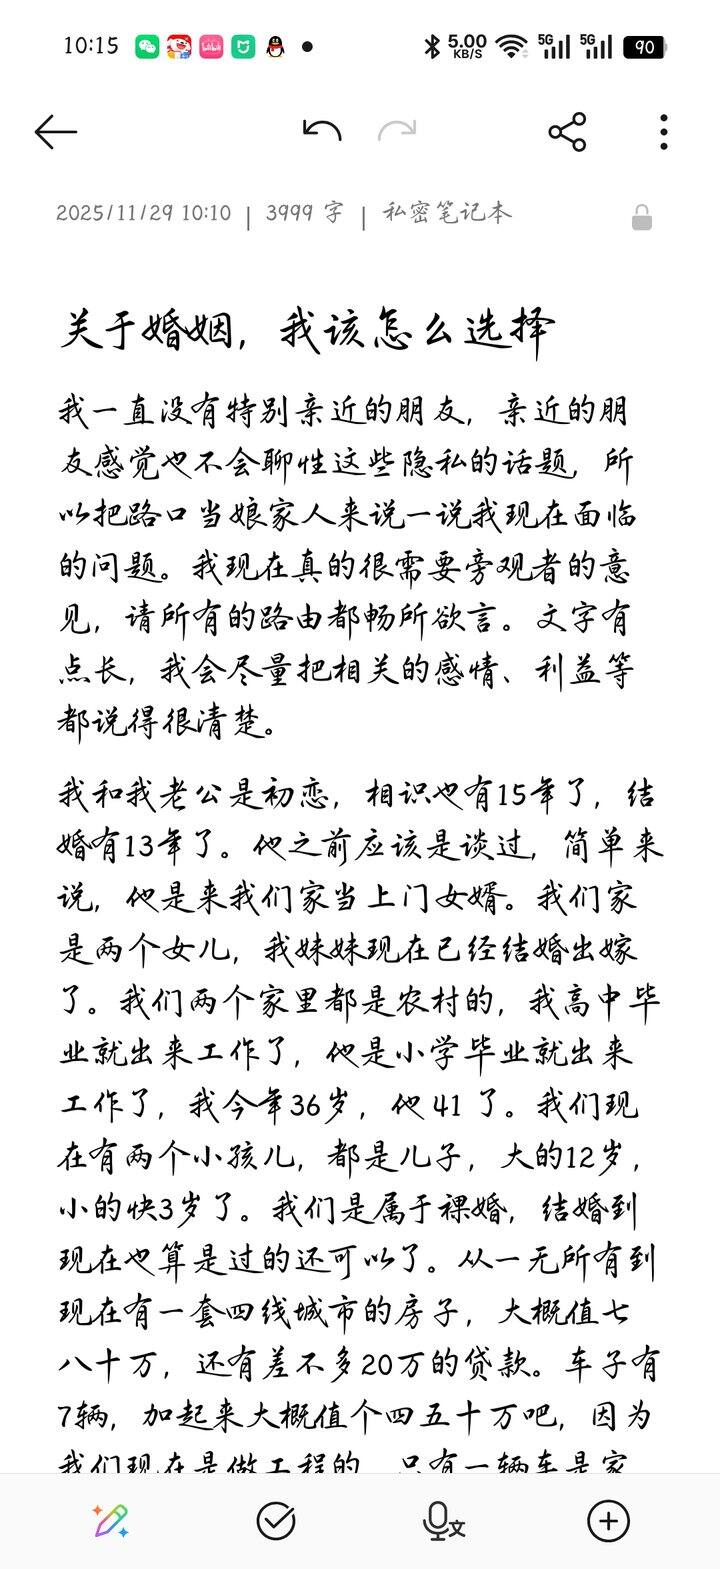 10:15
5.00 KB/S 5G 5G 90
2025/11/29 10:10 | 3999 字 | 私密笔记本
关于婚姻，我该怎么选择
我一直没有特别亲近的朋友，亲近的朋
友感觉也不会聊性这些隐私的话题，所
以把路口当娘家人来说一说我现在面临
的问题。我现在真的很需要旁观者的意
见，请所有的路由都畅所欲言。文字有
点长，我会尽量把相关的感情、利益等
都说得很清楚。
我和我老公是初恋，相识也有15年了，结
婚有13年了。他之前应该是谈过，简单来
说，他是来我们家当上门女婿。我们家
是两个女儿，我妹妹现在已经结婚出嫁
了。我们两个家里都是农村的，我高中毕
业就出来工作了，他是小学毕业就出来
工作了，我今年36岁，他41了。我们现
在有两个小孩儿，都是儿子，大的12岁，
小的快3岁了。我们是属于裸婚，结婚到
现在也算是过的还可以了。从一无所有到
现在有一套四线城市的房子，大概值七
八十万，还有差不多20万的贷款。车子有
7辆，加起来大概值个四五十万吧，因为
我们现在是做工程的，只有一辆车是家
文